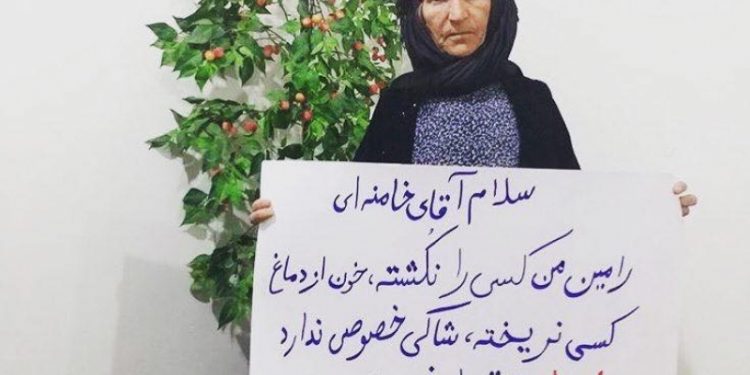 سلام آقای خامنه ای
رامین من کسی را نکُشته، خون از دماغ
کسی نریخته، شاکی خصوصی ندارد